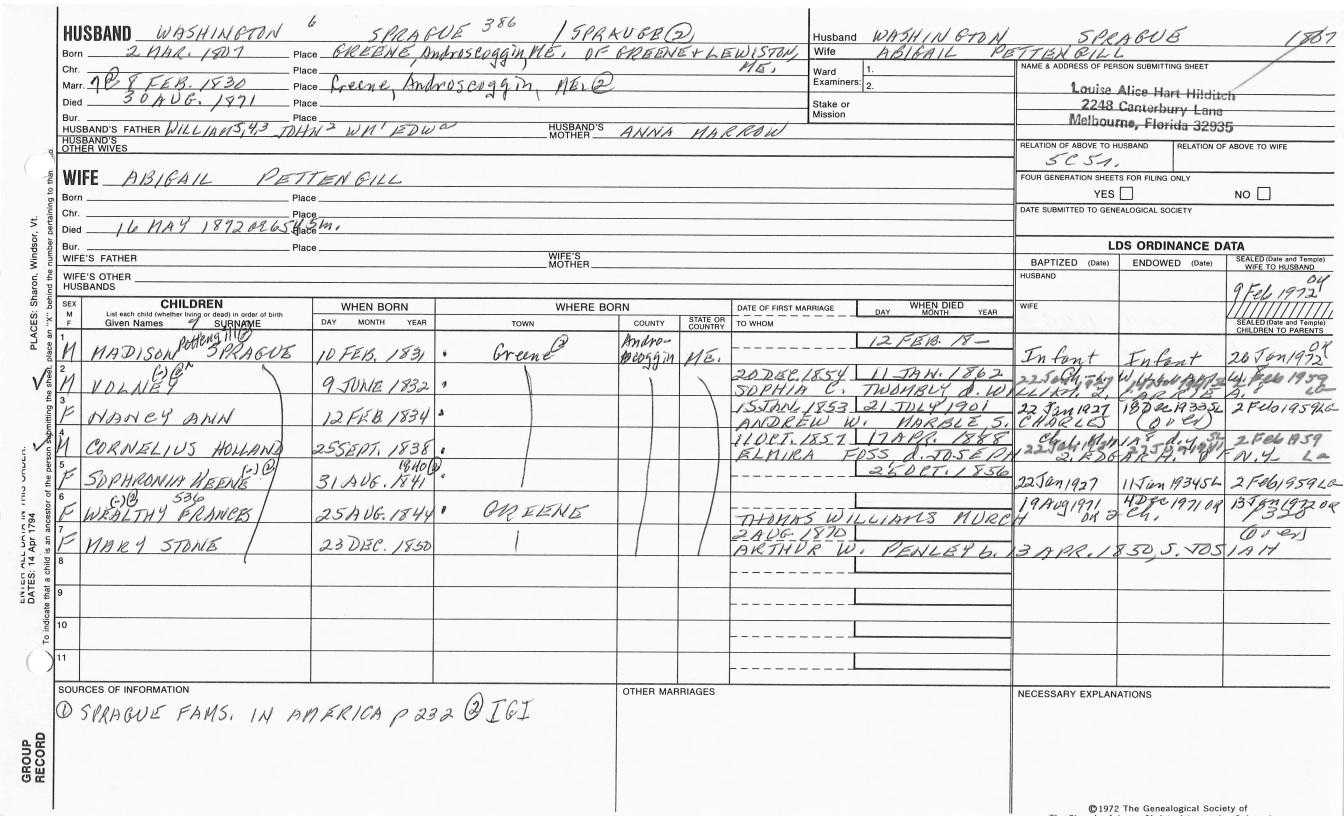 HUSBAND WASHINGTON 6 SPRAGUE 386 / SPRAUGE (2)
Born 2 MAR. 1807 Place GREENE, Androscoggin, ME. OF GREENE & LEWISTON, ME.
Chr. Place
Marr. 8 FEB. 1830 Place Greene, Androscoggin, ME. (2)
Died 30 AUG. 1871 Place
Bur. Place
HUSBAND'S FATHER WILLIAM 5,43 JOHN 2 WM 1 EDW HUSBAND'S MOTHER ANNA MARROW
HUSBAND'S OTHER WIVES
WIFE ABIGAIL PETTENGILL
Born Place
Chr. Place
Died 16 MAY 1872 Place
Bur. Place
WIFE'S FATHER WIFE'S MOTHER
WIFE'S OTHER HUSBANDS
Husband WASHINGTON SPRAGUE 1807
Wife ABIGAIL PETTENGILL
Ward Examiners: 1. 2.
Stake or Mission
NAME & ADDRESS OF PERSON SUBMITTING SHEET
Louise Alice Hart Hilditch
2248 Canterbury Lane
Melbourne, Florida 32935
RELATION OF ABOVE TO HUSBAND RELATION OF ABOVE TO WIFE
FOUR GENERATION SHEETS FOR FILING ONLY
YES NO
DATE SUBMITTED TO GENEALOGICAL SOCIETY
LDS ORDINANCE DATA
BAPTIZED (Date) ENDOWED (Date) SEALED (Date and Temple) WIFE TO HUSBAND
HUSBAND 9 Feb 1972
WIFE
SEALED (Date and Temple) CHILDREN TO PARENTS
SEX M F CHILDREN WHEN BORN WHERE BORN DATE OF FIRST MARRIAGE WHEN DIED
List each child (whether living or dead) in order of birth
Given Names SURNAME DAY MONTH YEAR TOWN COUNTY STATE OR COUNTRY TO WHOM DAY MONTH YEAR
1 M MADISON Pettengill (2) SPRAGUE 10 FEB. 1831 Greene (2) Androscoggin ME. 12 FEB. 18— Infant Infant 26 Jan 1972
2 M VOLNEY (-) (2) 9 JUNE 1832 20 DEC. 1854 11 JAN. 1862
SOPHIA C. TWOMBLY d. WILLIAM
3 F NANCY ANN 12 FEB 1834 15 JAN. 1853 21 JULY 1901 22 Jan 1927 2 Feb 1959 La
ANDREW W. MARBLE S. CHARLES (over)
4 M CORNELIUS HOLLAND 25 SEPT. 1838 11 OCT. 1857 17 APR. 1888 2 Feb 1959
ELMIRA FOSS d. JOSEPH
5 F SOPHRONIA KEENE (-) (2) 31 AUG. 1841 1840 (2) 25 OCT. 1856 22 Jan 1927 11 Jan 1934 SL 2 Feb 1959 La
6 F WEALTHY FRANCES (-) (2) 536 25 AUG. 1844 GREENE 19 Aug 1971 4 Dec 1971 OR 13 Jan 1972 OR
THOMAS WILLIAMS MURCH OR 2 Ch.
7 F MARY STONE 23 DEC. 1850 2 AUG. 1870 (over)
ARTHUR W. PENLEY b. 13 APR. 1850, S. JOSIAH
8
9
10
11
SOURCES OF INFORMATION
(1) SPRAGUE FAMS. IN AMERICA p 232 (2) IGI
OTHER MARRIAGES
NECESSARY EXPLANATIONS
©1972 The Genealogical Society of
PLACES: Sharon, Windsor, Vt.
DATES: 14 Apr 1794
To indicate that a child is an ancestor of the person submitting the sheet, place an "X" behind the number pertaining to that
GROUP RECORD